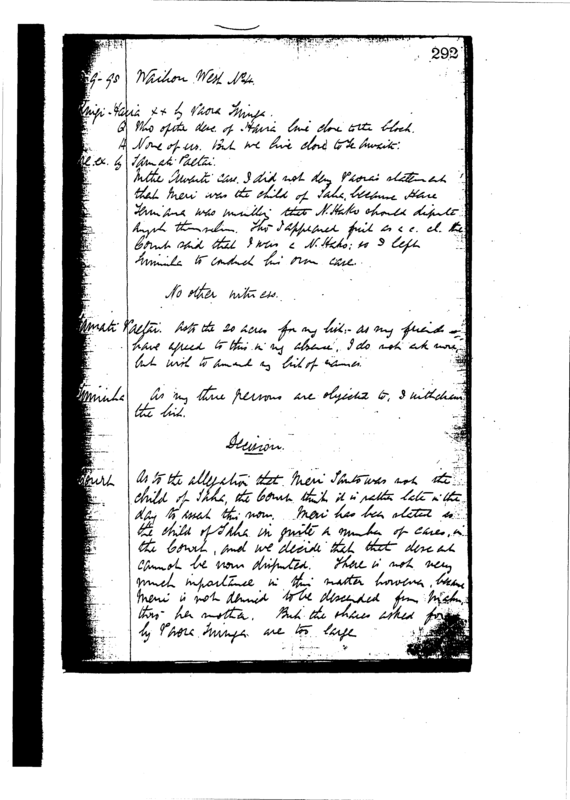 292
9-95 Waihou West No 4.
Haira xx by Paora
Q Who of the desc. of Haira live close to the block.
A None of us. But we live close to the Awaiti.
re. ex. by Tamati Paetai.
In the Awaiti case, I did not deny Paora's statement
that Meri was the child of Taha, because Hare
was unwilling that N. Hako should dispute
amgst themselves. Tho' I appeared first as a c. cl. the
Court said that I was a N. Hako; so I left
to conduct his own case.
No other witness.
Tamati Paetai. asks the 20 acres for my list; - as my friends
have agreed to this in my absence, I do not ask more,
but wish to amend my list of names.
As my three persons are objected to, I withdraw
the list.
Decision.
Court As to the allegation that Meri was not the
child of Taha, the Court think it is rather late in the
day to assert this now. Meri has been stated as
the child of Taha in quite a number of cases, in
the Court, and we decide that that descent
cannot be now disputed. There is not very
much importance in this matter however, because
Meri is not denied to be descended from
thro' her mother. But the shares asked for
by Paora are too large